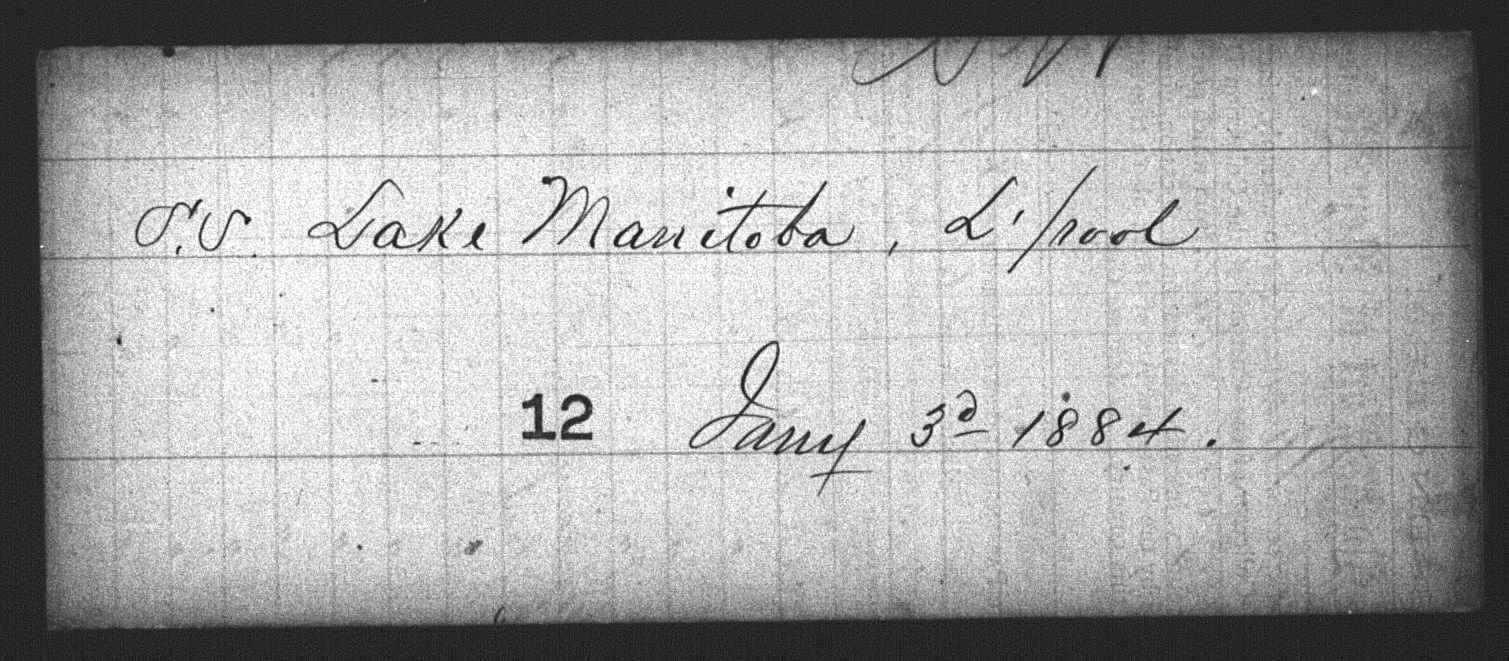 S.S. Lake Manitoba, L'pool
12 Jany 3d 1884.